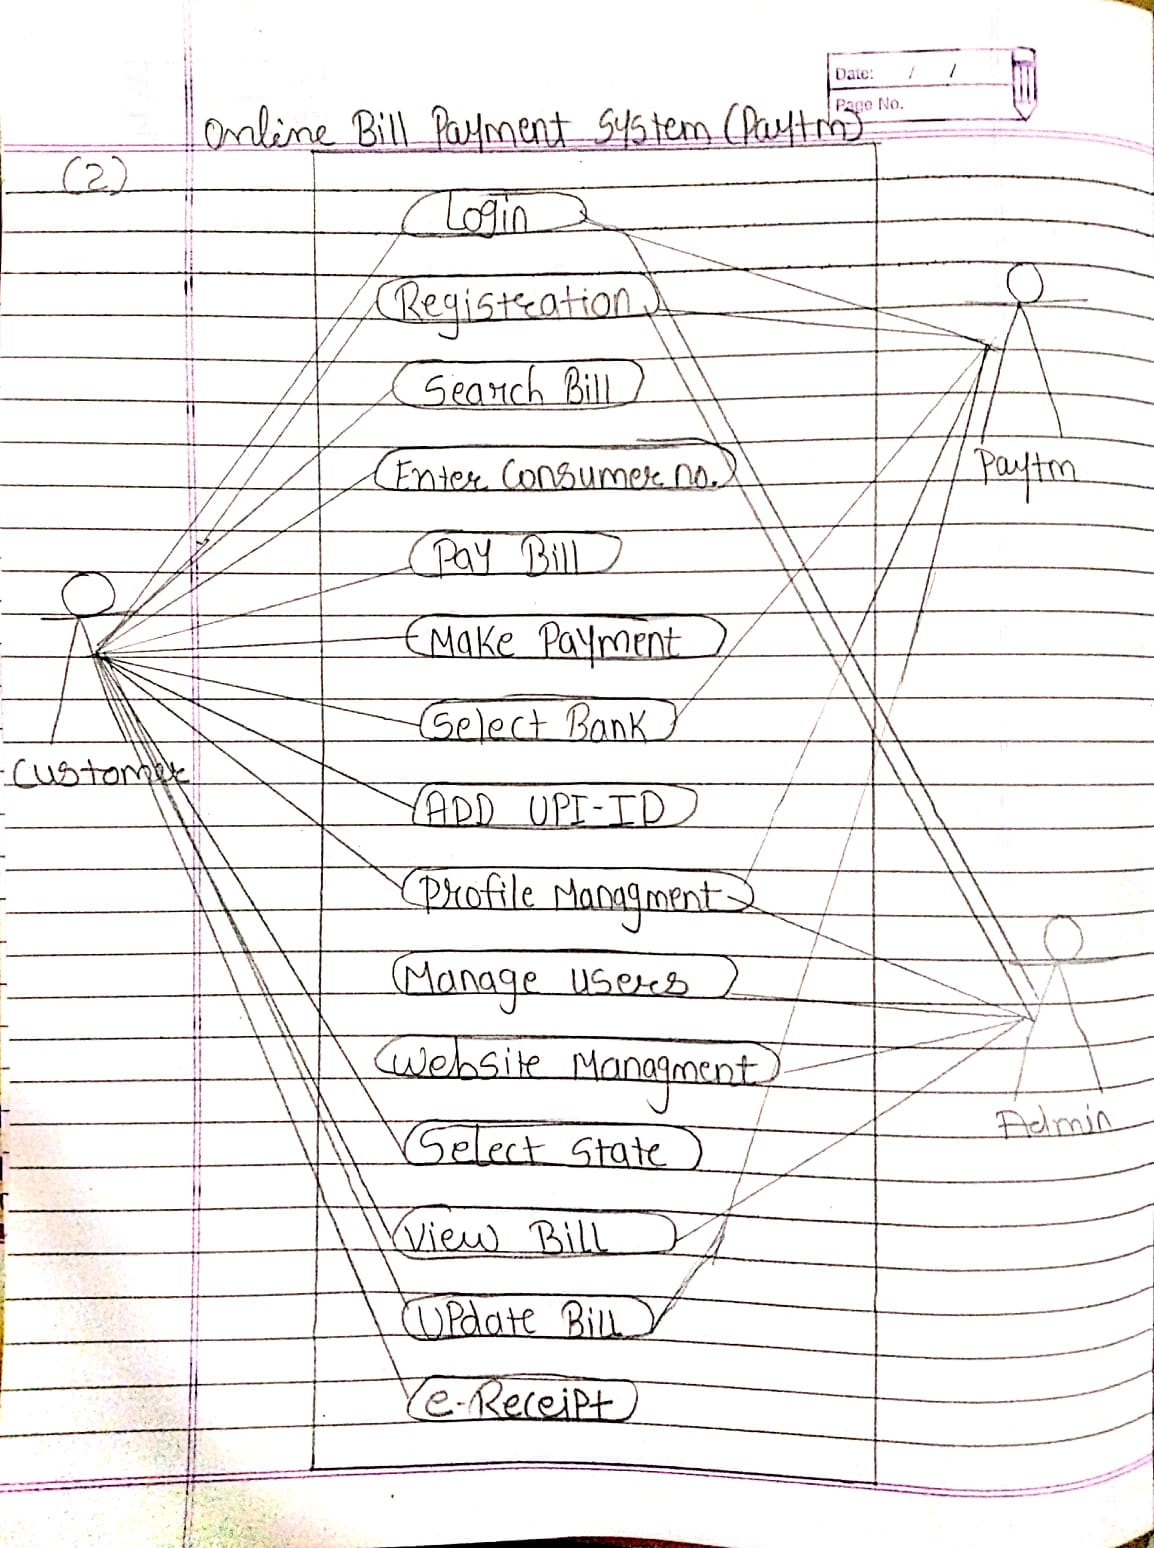 Date: / /
Page No.
Online Bill Payment System (Paytm)
(2)
Login
Registration
Search Bill
Enter Consumer no.
Paytm
Pay Bill
Make Payment
Select Bank
Customer
ADD UPI-ID
Profile Managment
Manage users
Website Managment
Admin
Select State
View Bill
Update Bill
e-Receipt